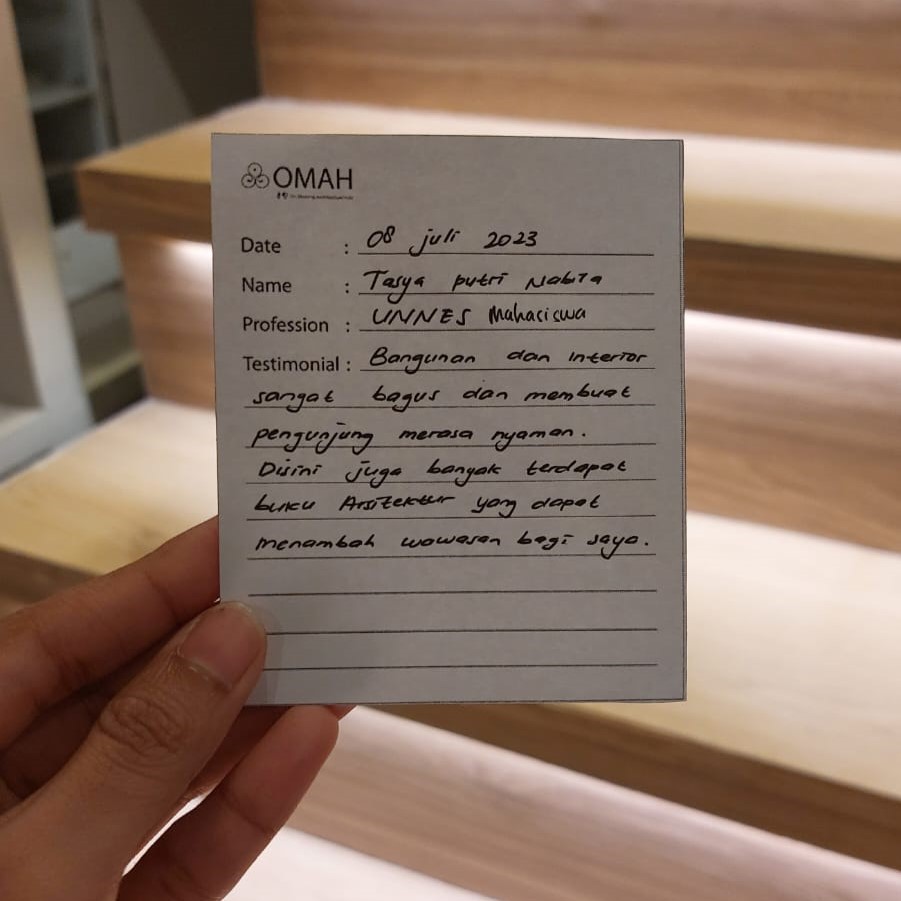 OMAH
Date : 08 juli 2023
Name : Tasya putri Nabila
Profession : UNNES Mahasiswa
Testimonial : Bangunan dan interior
sangat bagus dan membuat
pengunjung merasa nyaman.
Disini juga banyak terdapat
buku Arsitektur yang dapat
menambah wawasan bagi saya.